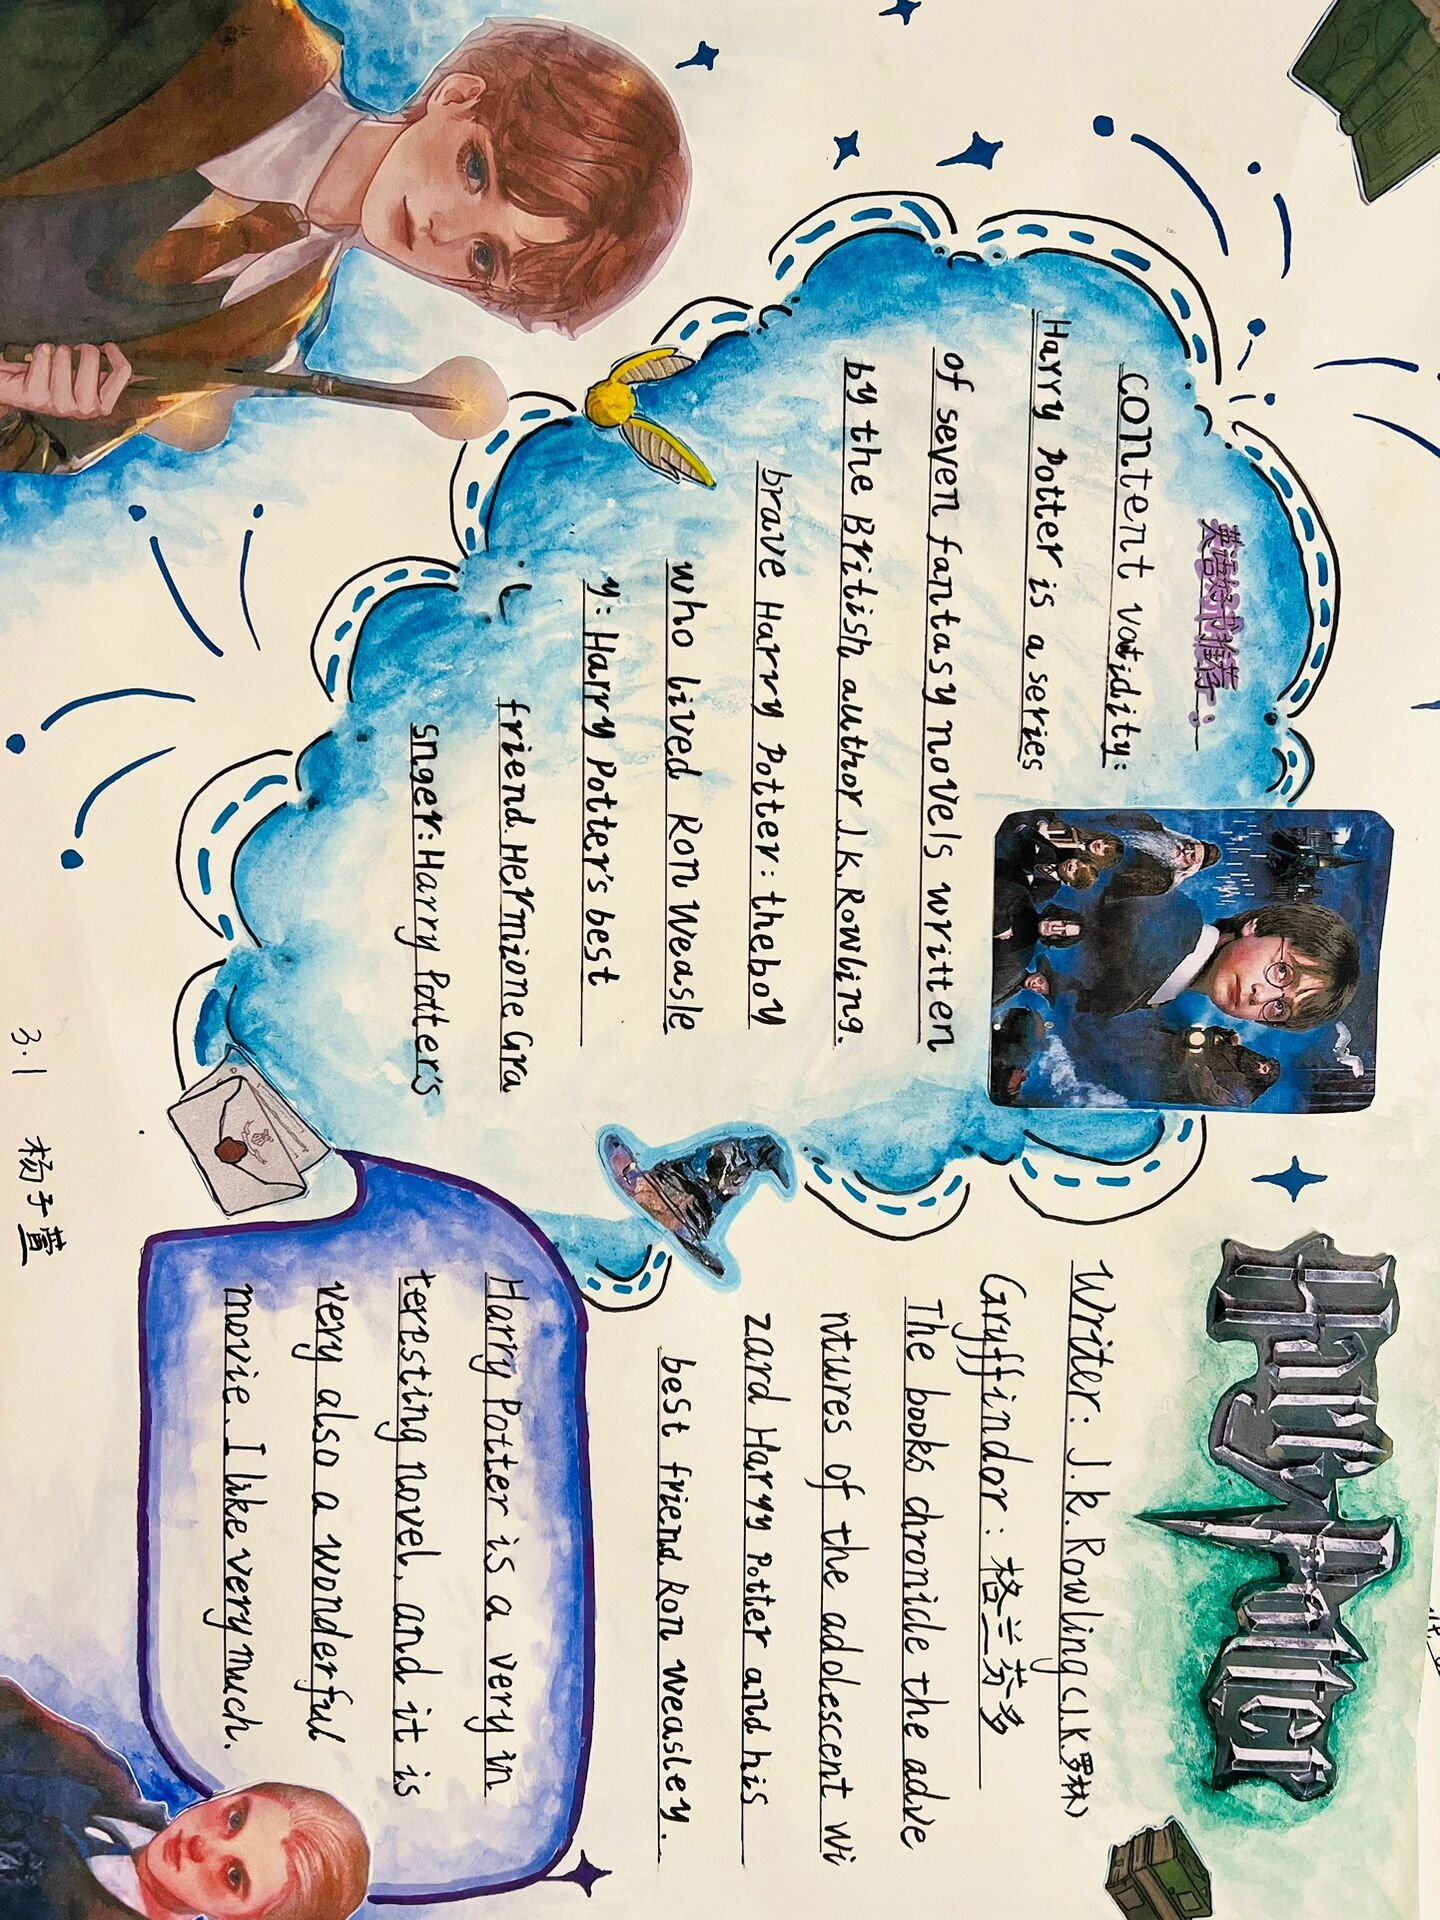 英语好书推荐:
content vatidity:
Harry Potter is a series
of seven fantasy novels written
by the British author J.K.Rowling.
brave Harry Potter: the boy
who lived Ron Weasle
y: Harry Potter's best
friend. Hermione Gra
snger: Harry Potter's
Harry Potter
Writer: J.k.Rowling(J.K.罗林)
Gryffindor: 格兰芬多
The books chronicle the adve
ntures of the adolescent wi
zard Harry Potter and his
best friend Ron weasley.
Harry Potter is a very in
teresting novel, and it is
very also a wonderful
movie. I like very much.
3.1 杨子萱